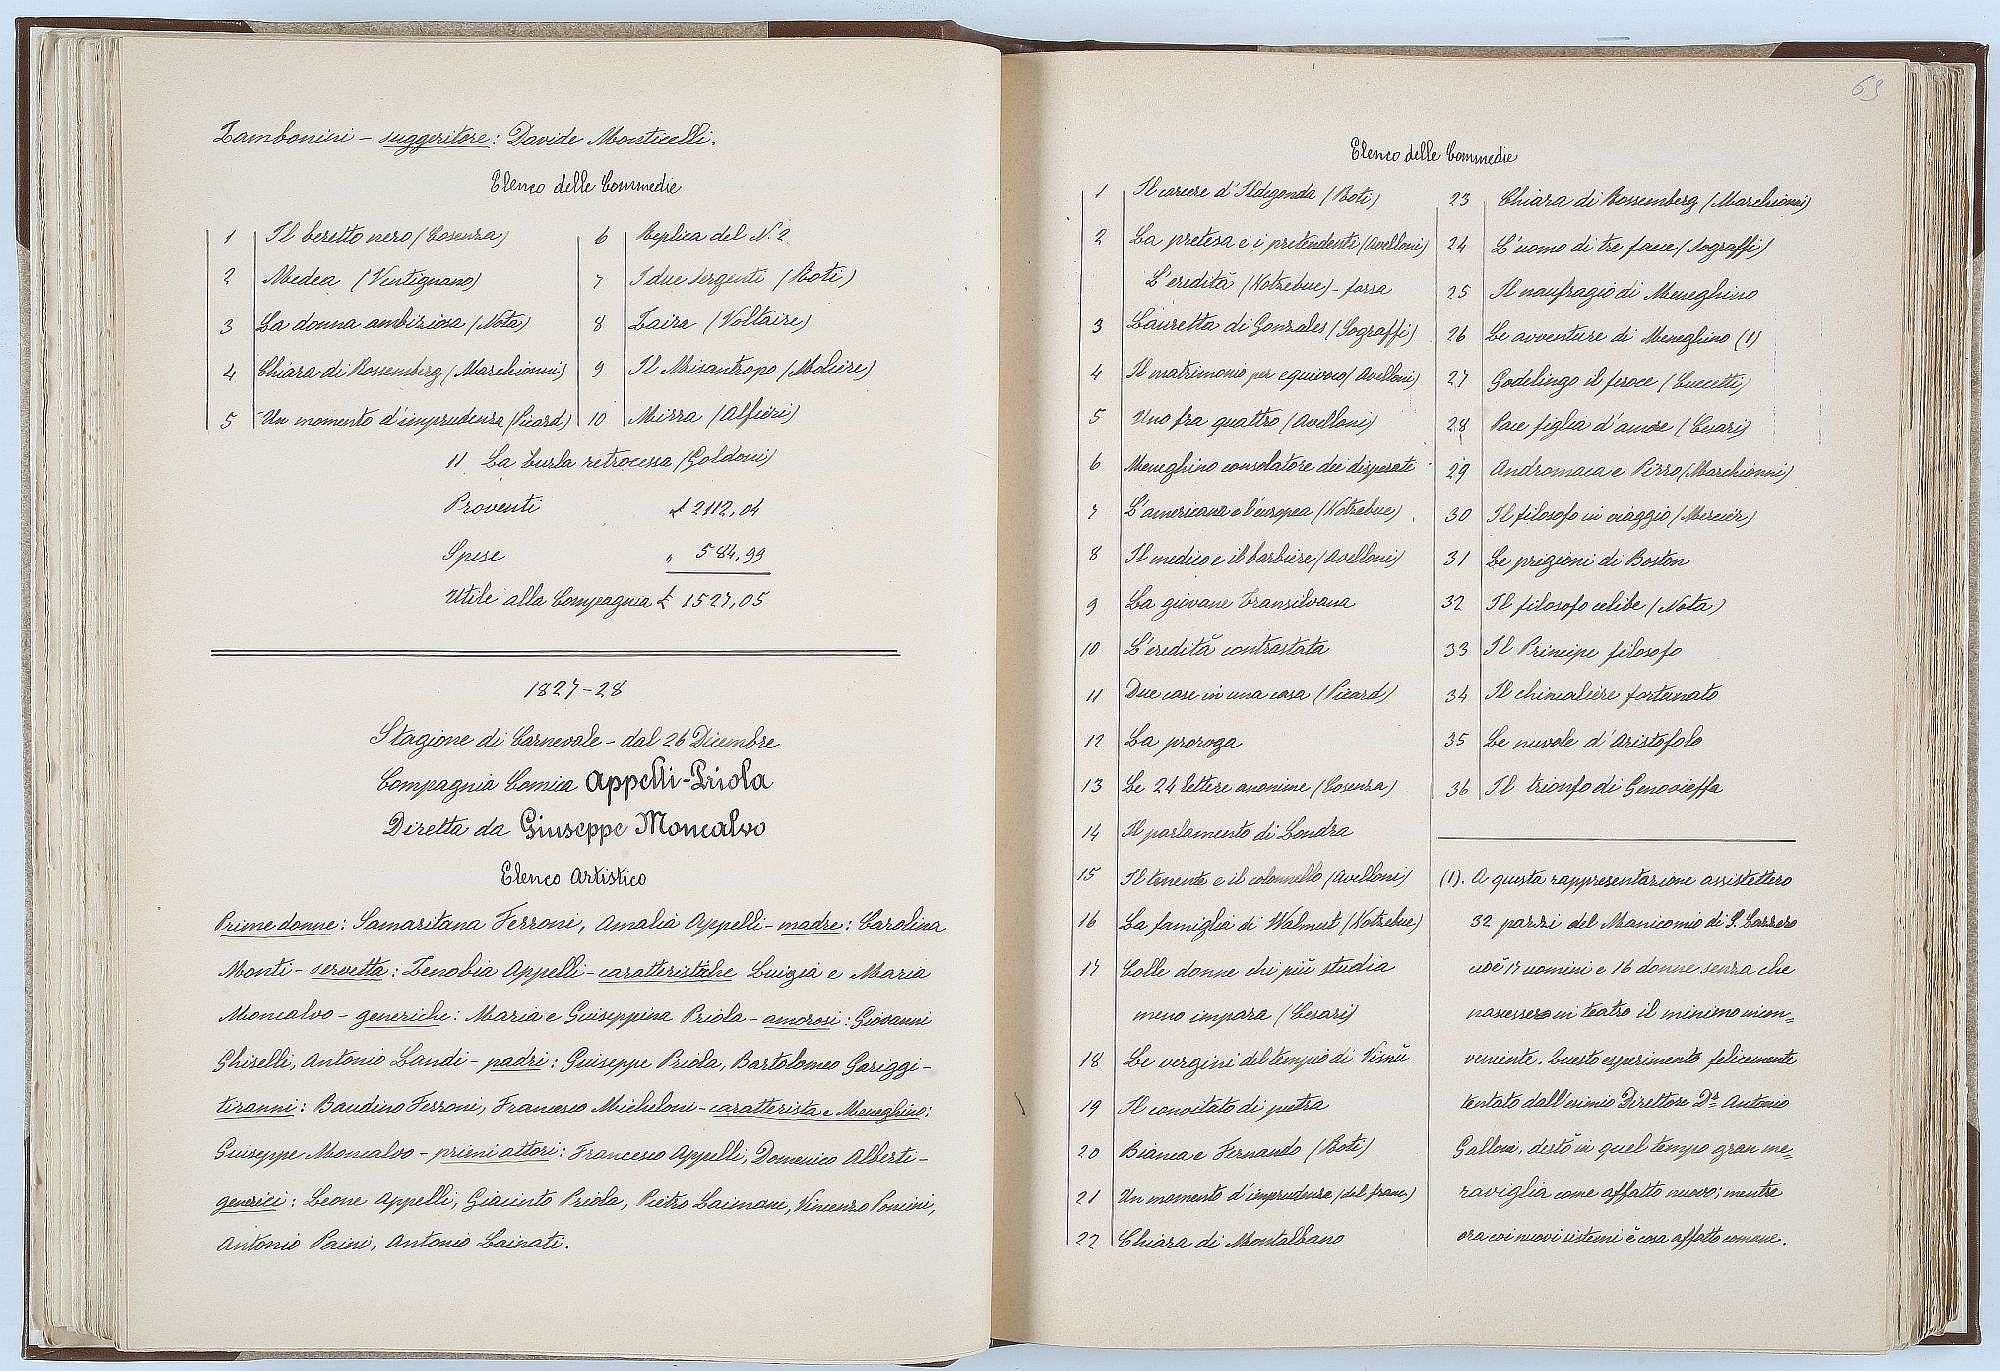 Zambonini - suggeritore: Davide Monticelli.
Elenco delle Commedie
1 Il beretto nero (Cosenza)
2 Medea (Ventignano)
3 La donna ambiziosa (Nota)
4 Chiara di Rossemberg (Marchionni)
5 Un momento d'imprudenza (Picard)
6 Replica del N. 2
7 I due sergenti (Roti)
8 Zaira (Voltaire)
9 Il Misantropo (Molière)
10 Mirra (Alfieri)
11 La burla retrocessa (Goldoni)
Proventi £ 2112,04
Spese " 584,99
Utile alla Compagnia £ 1527,05
1827-28
Stagione di Carnevale - dal 26 Dicembre
Compagnia Comica Appelli-Priola
Diretta da Giuseppe Moncalvo
Elenco Artistico
Prime donne: Samaritana Ferroni, Amalia Appelli - madre: Carolina
Monti - servetta: Zenobia Appelli - caratteristiche Luigia e Maria
Moncalvo - generiche: Maria e Giuseppina Priola - amorosi: Giovanni
Ghiselli, Antonio Landi - padri: Giuseppe Priola, Bartolomeo Gariggi -
tiranni: Baudino Ferroni, Francesco Micheloni - caratterista e Meneghino:
Giuseppe Moncalvo - primi attori: Francesco Appelli, Domenico Alberti -
generici: Leone Appelli, Giacinto Priola, Pietro Laimani, Vincenzo Ponini,
Antonio Paini, Antonio Lainati.
69
Elenco delle Commedie
1 Il carcere d'Ildegonda (Roti)
2 La pretesa e i pretendenti (Avelloni)
L'eredità (Kotzebue) - farsa
3 Lauretta di Gonzales (Sograffi)
4 Il matrimonio per equivoco (Avelloni)
5 Uno fra quattro (Avelloni)
6 Meneghino consolatore dei disperati
7 L'americana e l'europea (Kotzebue)
8 Il medico e il barbiere (Avelloni)
9 La giovane Transilvana
10 L'eredità contrastata
11 Due case in una casa (Picard)
12 La proroga
13 Le 24 lettere anonime (Cosenza)
14 Il parlamento di Londra
15 Il tenente e il colonnello (Avelloni)
16 La famiglia di Walmut (Kotzebue)
17 Colle donne chi più studia
meno impara (Cesari)
18 Le vergini del tempio di Visnù
19 Il convitato di pietra
20 Bianca e Fernando (Roti)
21 Un momento d'imprudenza (dal franc.)
22 Chiara di Montalbano
23 Chiara di Rossemberg (Marchionni)
24 L'uomo di tre facce (Sograffi)
25 Il naufragio di Meneghino
26 Le avventure di Meneghino (1)
27 Godelingo il feroce (Cuccetti)
28 Pace figlia d'amore (Cesari)
29 Andromaca e Pirro (Marchionni)
30 Il filosofo in viaggio (Mercier)
31 Le prigioni di Boston
32 Il filosofo celibe (Nota)
33 Il Principe filosofo
34 Il chincaliere fortunato
35 Le nuvole d'Aristofolo
36 Il trionfo di Genovieffa
(1). A questa rappresentazione assistettero
32 pazzi del Manicomio di S. Lazzero
cioè 17 uomini e 16 donne senza che
nascesse in teatro il minimo incon=
veniente. Questo esperimento felicemente
tentato dall'esimio Direttore Dr. Antonio
Galloni, destò in quel tempo gran me=
raviglia come affatto nuovo; mentre
ora coi nuovi sistemi è cosa affatto comune.